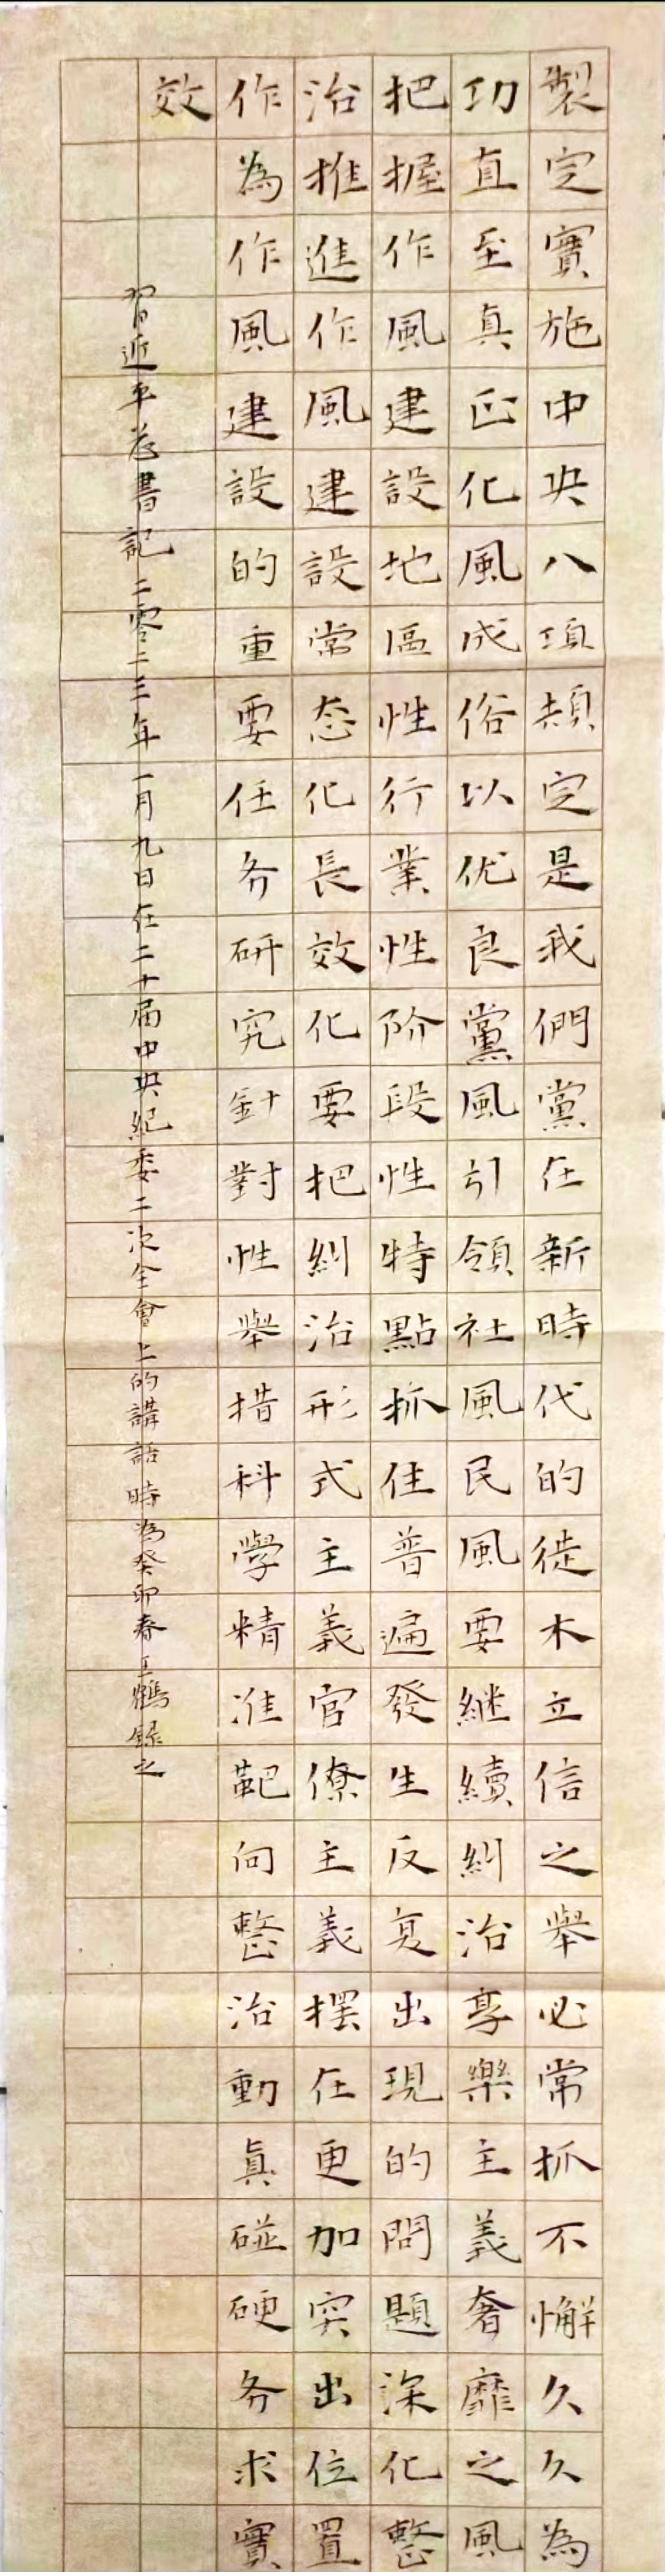 製定實施中央八項規定是我們黨在新時代的徙木立信之舉必常抓不懈久久為
功直至真正化風成俗以优良黨風引領社風民風要継續糾治享樂主義奢靡之風
把握作風建設地區性行業性阶段性特點抓住普遍發生反复出現的問題深化整
治推進作風建設常态化長效化要把糾治形式主義官僚主義摆在更加突出位置
作為作風建設的重要任务研究針對性舉措科學精准靶向整治動真碰硬务求實
效
習近平总書記二零二三年一月九日在二十届中央紀委二次全會上的講話時為癸卯春王鶴録之